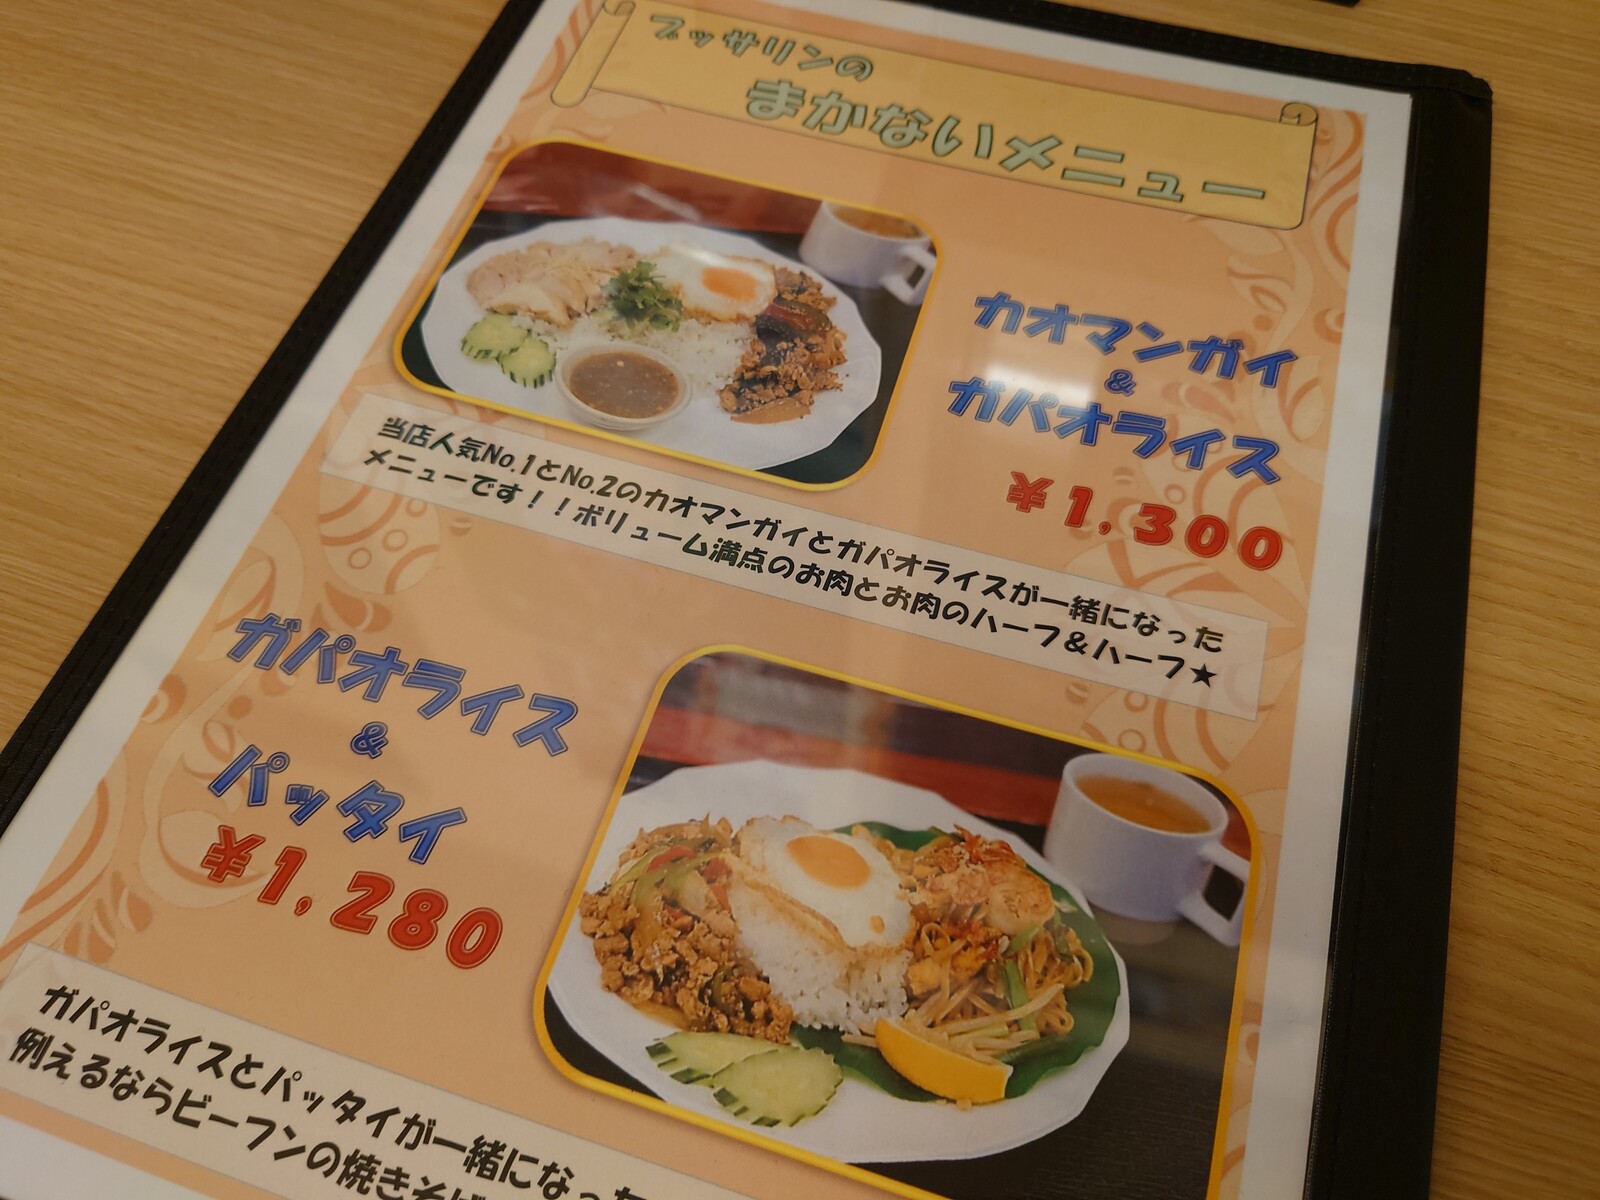 ブッサリンの
まかないメニュー
カオマンガイ
&
ガパオライス
¥1,300
当店人気No.1とNo.2のカオマンガイとガパオライスが一緒になった
メニューです！！ボリューム満点のお肉とお肉のハーフ＆ハーフ★
ガパオライス
&
パッタイ
¥1,280
ガパオライスとパッタイが一緒になった
例えるならビーフンの焼きそば